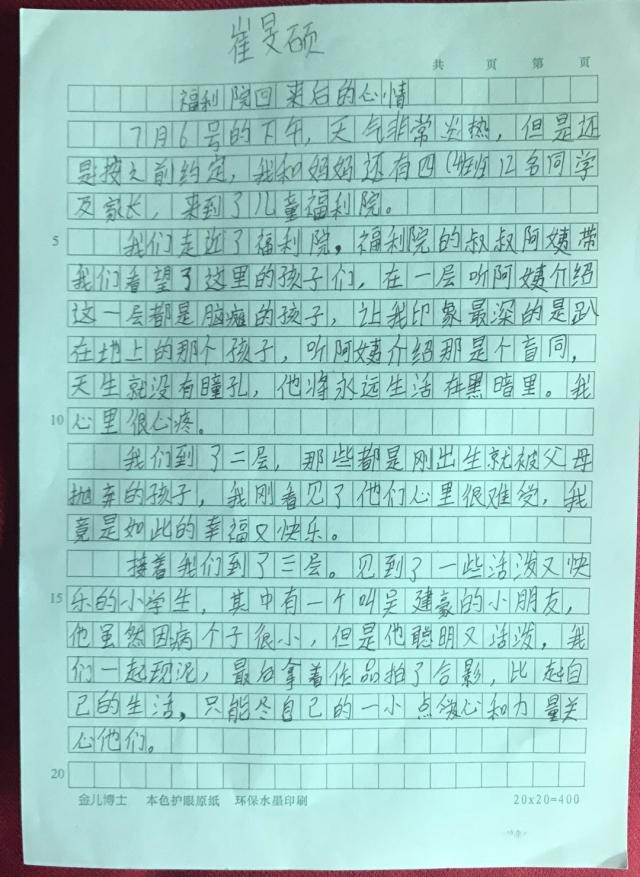 崔旻硕
共 页 第 页
福利院回来后的心情
7月6号的下午，天气非常炎热，但是还
是按之前约定，我和妈妈还有四(班)12名同学
及家长，来到了儿童福利院。
5 我们走近了福利院，福利院的叔叔阿姨带
我们看望了这里的孩子们，在一层听阿姨介绍
这一层都是脑瘫的孩子，让我印象最深的是趴
在地上的那个孩子，听阿姨介绍那是个盲同，
天生就没有瞳孔，他将永远生活在黑暗里。我
10 心里很心疼。
我们到了二层，那些都是刚出生就被父母
抛弃的孩子，我刚看见了他们心里很难受，我
竟是如此的幸福又快乐。
接着我们到了三层。见到了一些活泼又快
15 乐的小学生，其中有一个叫吴建豪的小朋友，
他虽然因病个子很小，但是他聪明又活泼，我
们一起现泥，最后拿着作品拍了合影，比起自
己的生活，只能冬自己的一小点爱心和力量关
心他们。
20
金儿博士 本色护眼原纸 环保水墨印刷 20x20=400